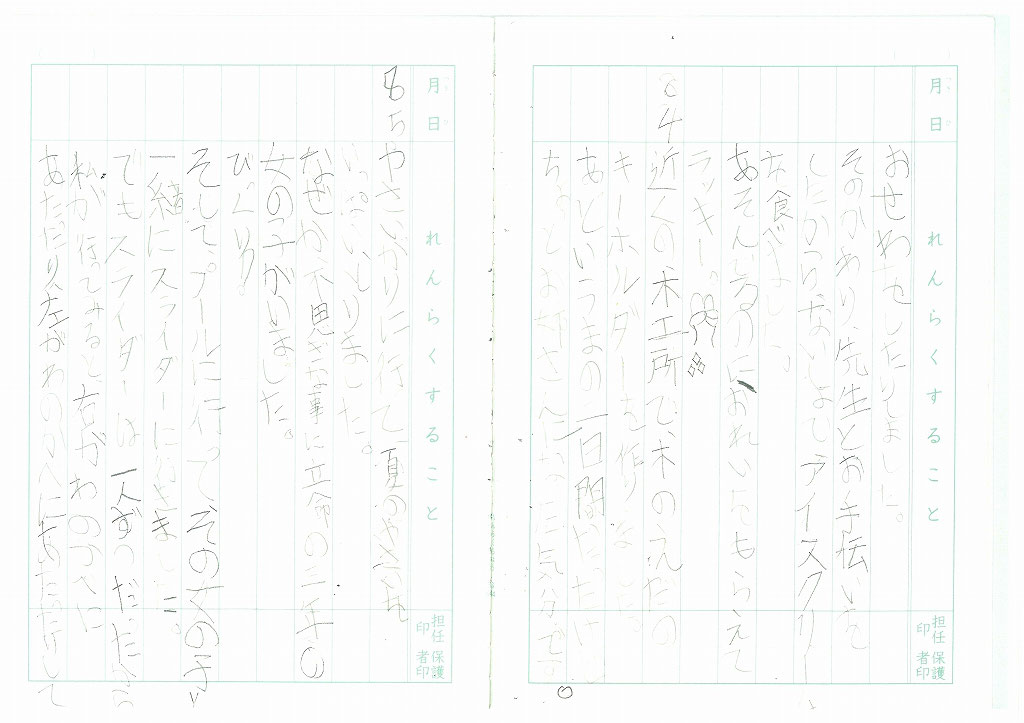 月日
れんらくすること
担任印
保護者印
おせわをしたりしました。
そのかわり、先生とお手伝いを
したからないしょでアイスクリー
を食べました。
あそんだのにおれいにもらえて
ラッキー。
8 4 近くの木工所で、木のえだの
キーホルダーを作りました。
あというまの一日間だったけ
ちょっとお姉さんになった気分です。
月日
れんらくすること
担任印
保護者印
8 5 やさいかりに行って「夏のやさいを
いっぱいとりました。
なぜか不思ぎな事に立命の二年の
女の子がいました。
びっくり。
そして、プールに行って、その女の子と
一緒にスライダーに行きました。
でもスライダーは一人ずつだった
私が行ってみると、右がわのかべに
あたったり、左がわのかべにあたったりして